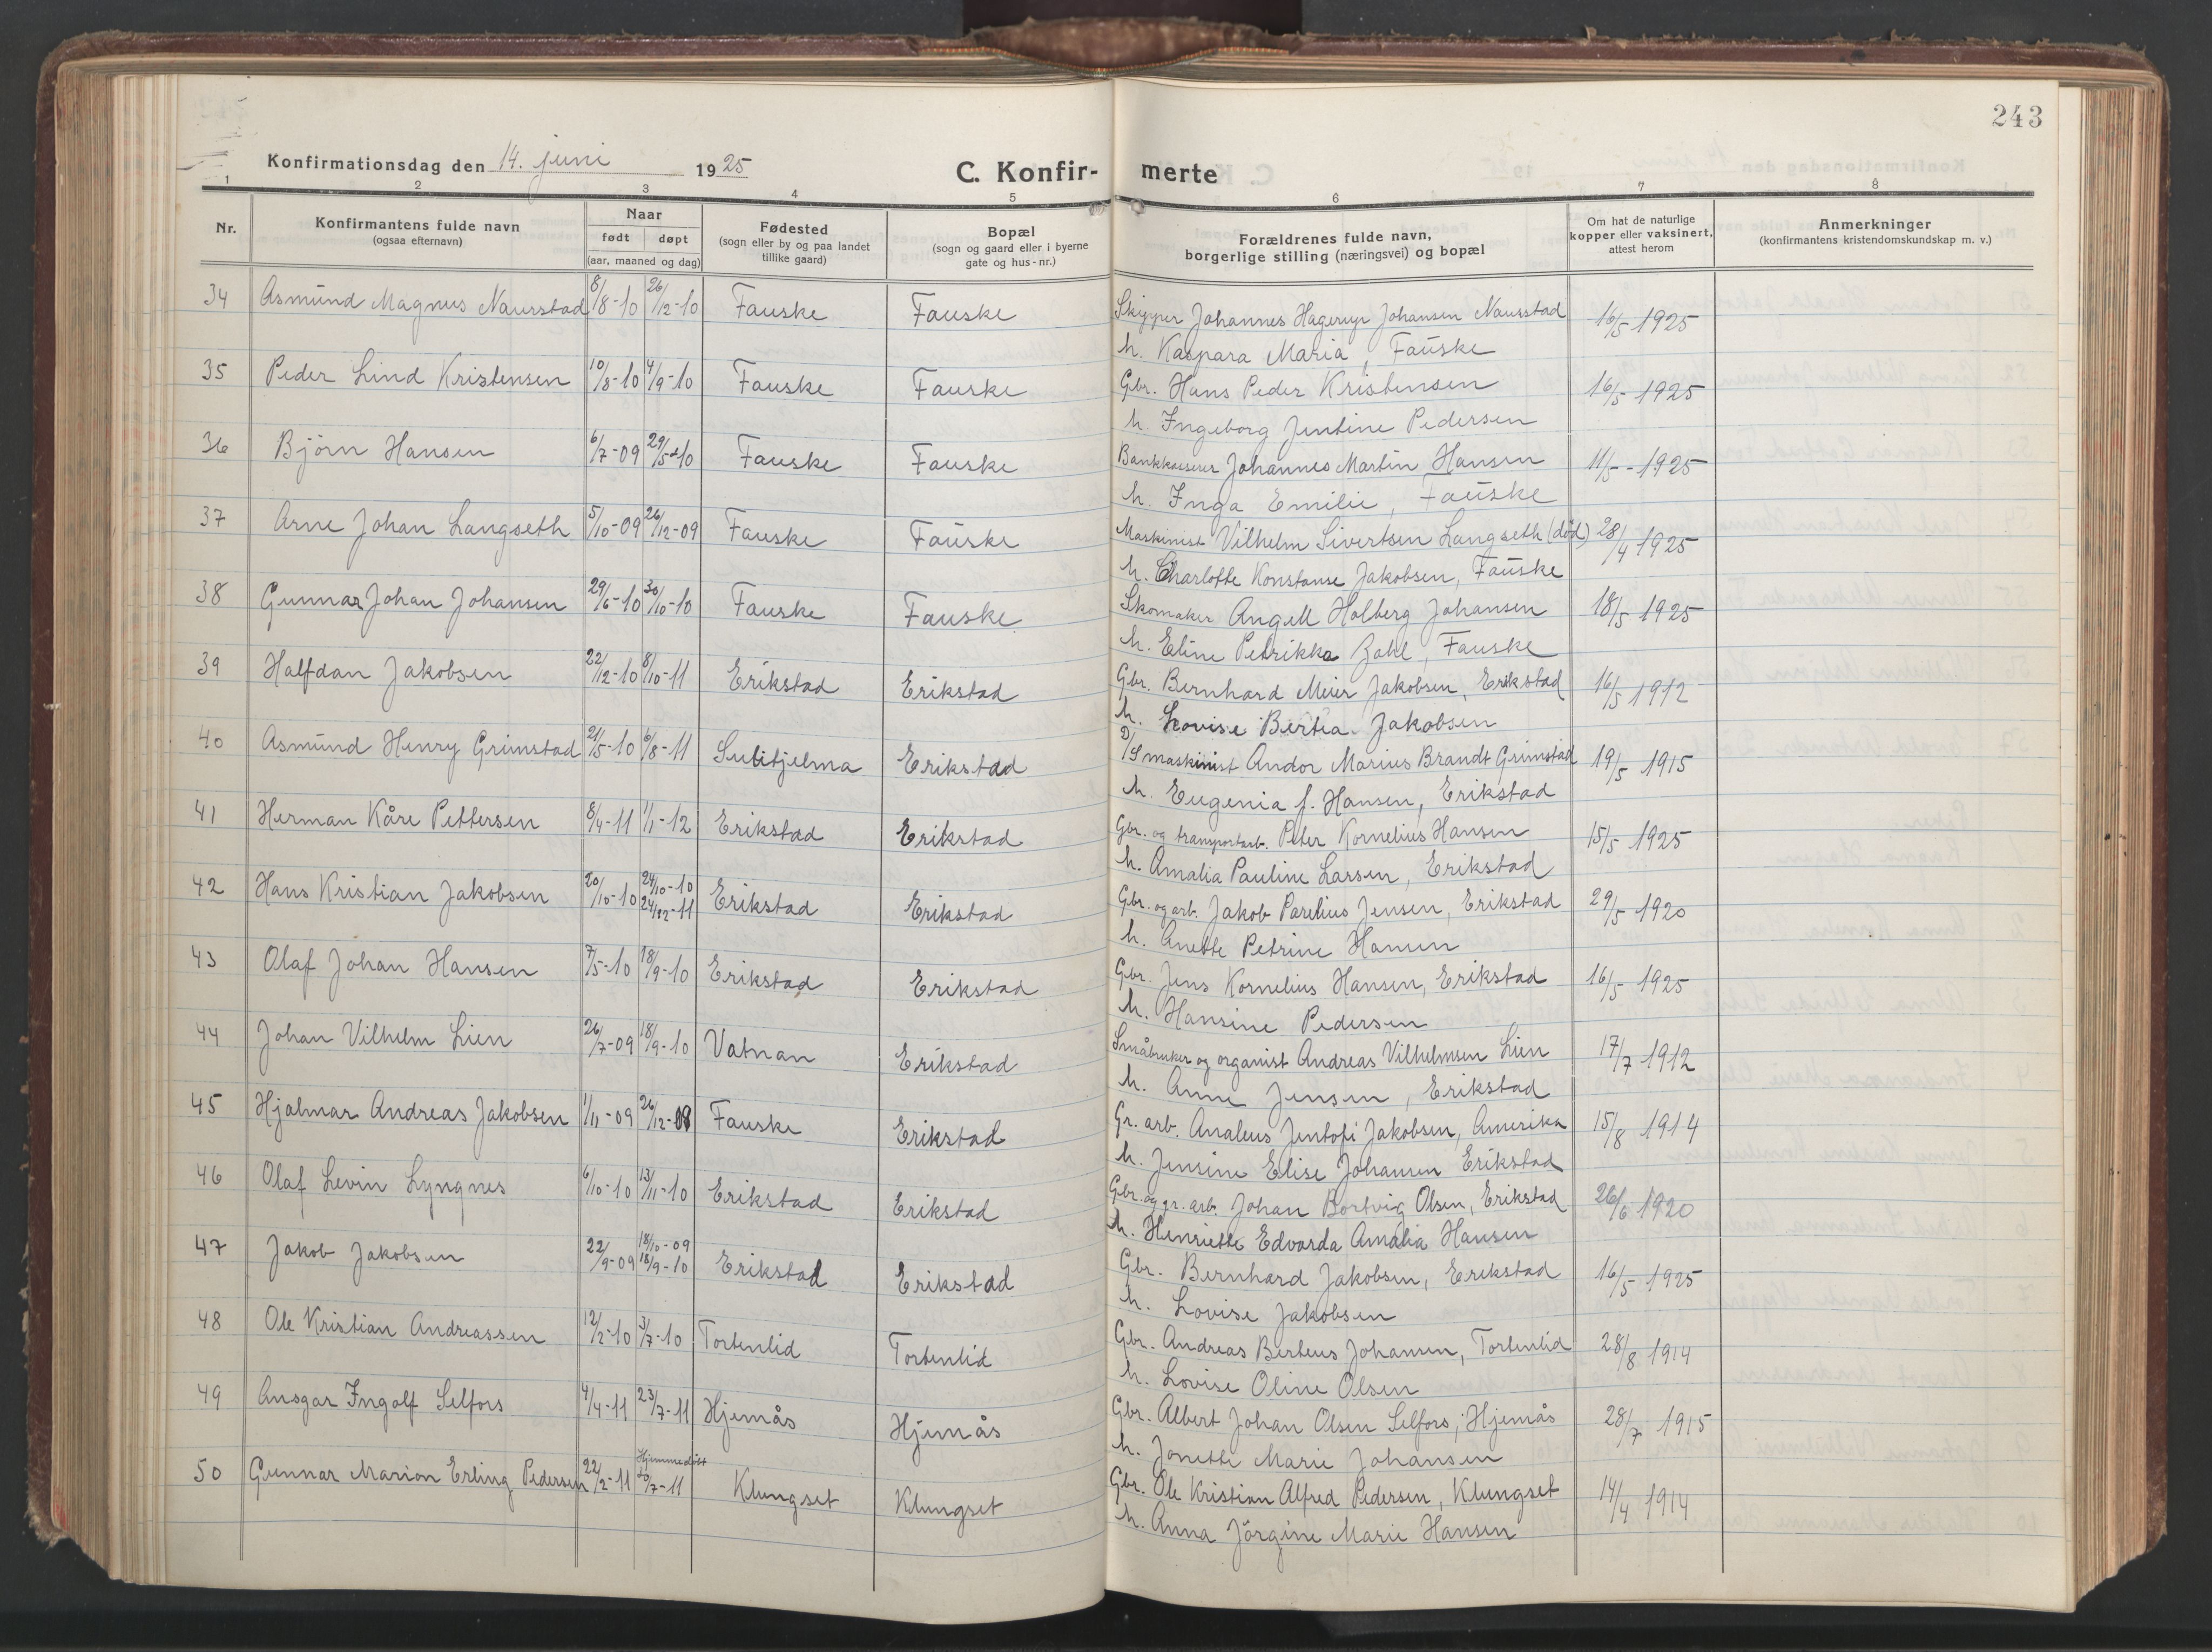 243
Konfirmationsdag den 14. juni 1925 C. Konfirmerte
1 2 3 4 5 6 7 8
Nr. Konfirmantens fulde navn (ogsaa efternavn) Naar født døpt (aar, maaned og dag) Fødested (sogn eller by og paa landet tillike gaard) Bopæl (sogn og gaard eller i byerne gate og hus-nr.) Forældrenes fulde navn, borgerlige stilling (næringsvei) og bopæl Om hat de naturlige kopper eller vaksinert, attest herom Anmerkninger (konfirmantens kristendomskundskap m. v.)
34 Asmund Magnus Naurstad 8/8-10 26/12-10 Fauske Fauske Skipper Johannes Hagerup Johansen Naurstad 16/5 1925
h. Kaspara Maria, Fauske
35 Peder Lind Kristensen 10/8-10 4/9-10 Fauske Fauske Gbr. Hans Peder Kristensen 16/5 1925
h. Ingeborg Jentine Pedersen
36 Björn Hansen 6/7-09 29/5-10 Fauske Fauske Bankkasserer Johannes Martin Hansen 11/5-1925
h. Inga Emilie, Fauske
37 Arne Johan Langseth 5/10-09 26/12-09 Fauske Fauske Maskinist Vilhelm Sivertsen Langseth (död) 28/4 1925
h. Charlotte Konstanse Jakobsen, Fauske
38 Gunnar Johan Johansen 29/6-10 30/10-10 Fauske Fauske Skomaker Angell Holberg Johansen 18/5 1925
h. Eline Petrikka Zahl, Fauske
39 Halfdan Jakobsen 22/12-10 8/10-11 Erikstad Erikstad Gbr. Bernhard Meier Jakobsen, Erikstad 16/5 1912
h. Lovise Bertea Jakobsen
40 Asmund Henry Grimstad 21/5-10 6/8-11 Sulitjelma Erikstad D/S maskinist Andor Marius Brandt Grimstad 19/5 1915
h. Eugenia f. Hansen, Erikstad
41 Herman Kåre Pettersen 8/4-11 1/1-12 Erikstad Erikstad Gbr. og transportarb. Peter Kornelius Hansen 15/5 1925
h. Amalia Pauline Larsen, Erikstad
42 Hans Kristian Jakobsen 20/10-10 24/10-10 24/12-11 Erikstad Erikstad Gbr. og arb. Jakob Parelius Jensen, Erikstad 29/5 1920
h. Anette Petrine Hansen
43 Olaf Johan Hansen 7/5-10 18/9-10 Erikstad Erikstad Gbr. Jens Kornelius Hansen, Erikstad 16/5 1925
h. Hansine Pedersen
44 Johan Vilhelm Lien 26/7-09 18/9-10 Vatnan Erikstad Småbruker og organist Andreas Vilhelmsen Lien 17/7 1912
h. Anne Jensen, Erikstad
45 Hjalmar Andreas Jakobsen 1/11-09 26/12-09 Fauske Erikstad Gr. arb. Analeus Jentofi Jakobsen, Amerika 15/8 1914
h. Jensine Elise Johansen Erikstad
46 Olaf Levin Lyngnes 6/10-10 13/11-10 Erikstad Erikstad Gbr. og gr. arb. Johan Bortvig Olsen, Erikstad 26/6 1920
h. Henriette Edvarda Amalia Hansen
47 Jakob Jakobsen 22/9-09 18/10-09 18/9-10 Erikstad Erikstad Gbr. Bernhard Jakobsen, Erikstad 16/5 1925
h. Lovise Jakobsen
48 Ole Kristian Andreassen 12/2-10 3/7-10 Tortenlid Tortenlid Gbr. Andreas Berteus Johansen, Tortenlid 28/8 1914
h. Lovise Oline Olsen
49 Ansgar Ingolf Selfors 4/4-11 23/7-11 Hjemås Hjemås Gbr. Albert Johan Olsen Selfors, Hjemås 28/7 1915
h. Jonette Marie Johansen
50 Gunnar Marion Erling Pedersen 22/2-11 Hjemmedöbt /7-11 Klungset Klungset Gbr. Ole Kristian Alfred Pedersen, Klungset 14/4 1914
h. Anna Jörgine Marie Hansen